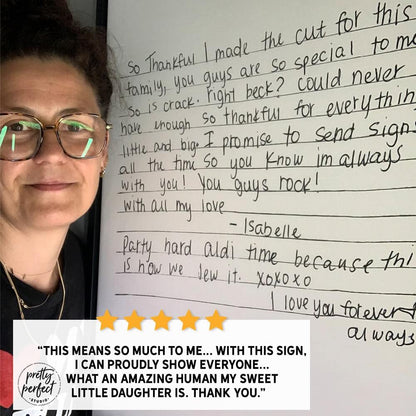 So Thankful I made the cut for this
family, you guys are so special to me
so is crack. right beck? Could never
have enough so thankful for everythin
little and big. I promise to send signs
all the time so you know im always
with you! You guys rock!
with all my love
- Isabelle
Party hard aldi time because thi
is how we dew it. xoxoxo
I love you forever +
always
"THIS MEANS SO MUCH TO ME... WITH THIS SIGN,
I CAN PROUDLY SHOW EVERYONE...
WHAT AN AMAZING HUMAN MY SWEET
LITTLE DAUGHTER IS. THANK YOU."
pretty
perfect
• STUDIO •